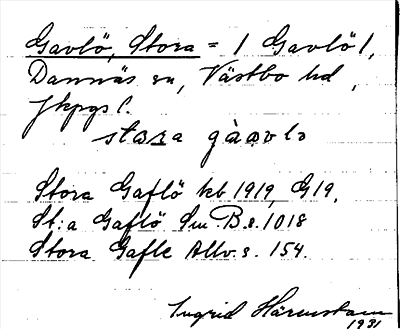 Gavlö, Stora = 1 Gavlö 1,
Dannäs sn, Västbo hd,
Jkpgs l.
stora gåavlö
Stora Gaflö kb 1919, G19,
St:a Gaflö Sm. B.s. 1018
Stora Gafle Allv.s. 154.
Ingrid Härenstam
1931